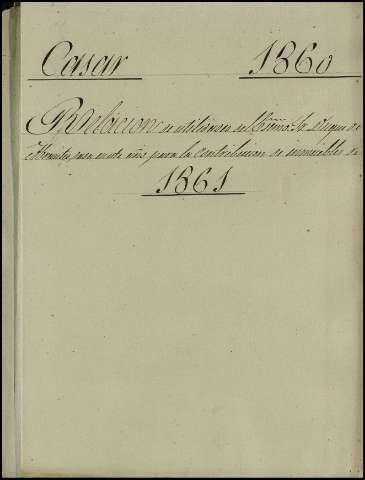 Casar 1860
Relacion de utilidades del Escmo. Sr. Duque de
para este año para la Contribucion de inmuebles de
1861